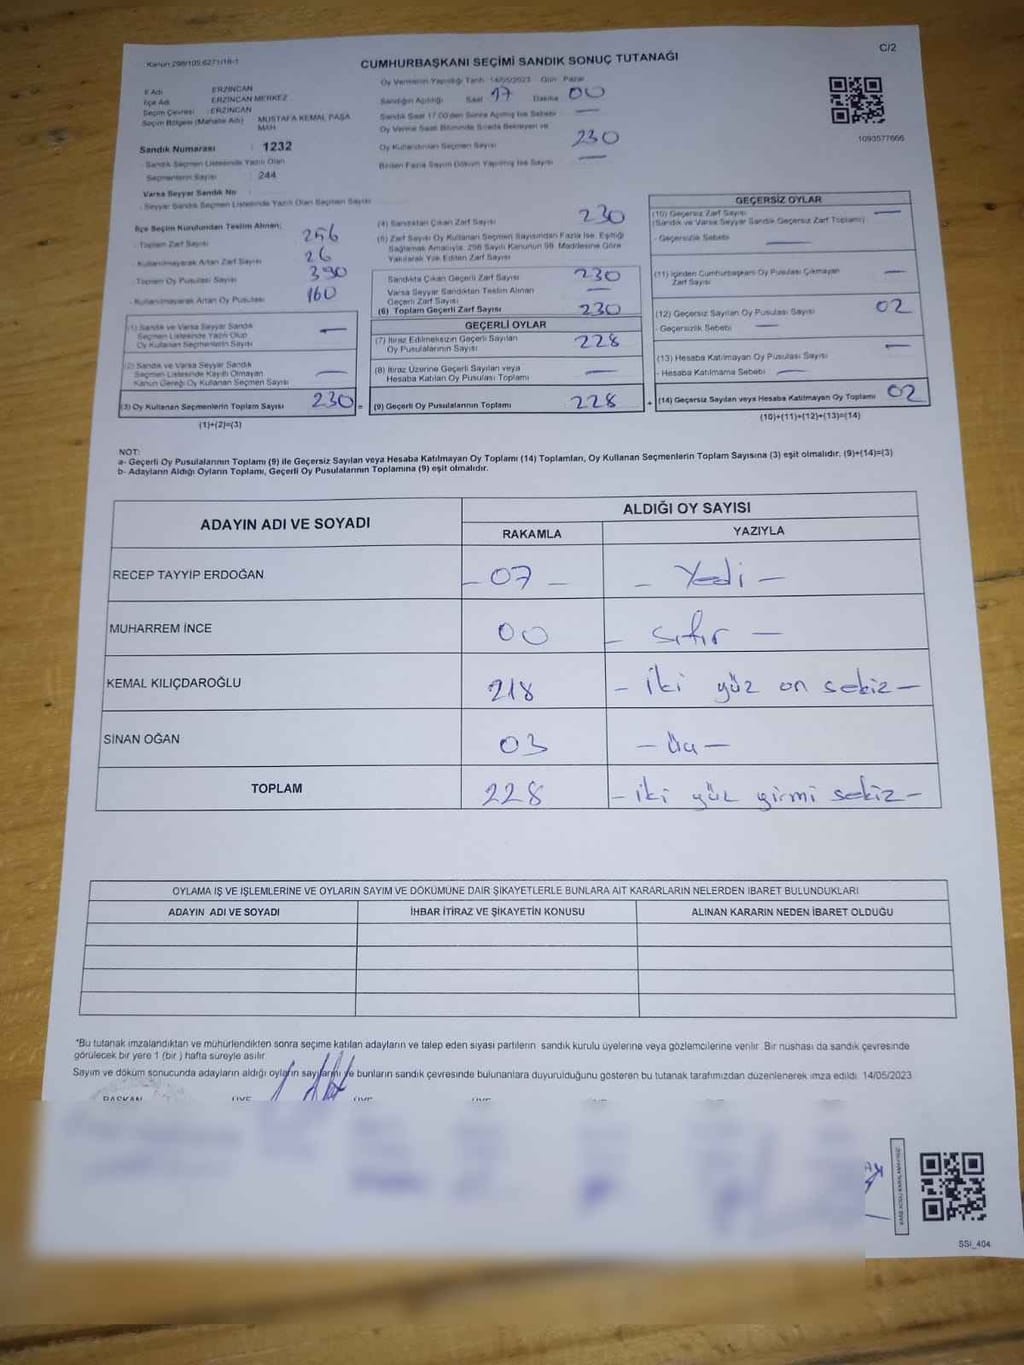 Kanun 298/105 6271/18-1
C/2
CUMHURBAŞKANI SEÇİMİ SANDIK SONUÇ TUTANAĞI
İl Adı ERZİNCAN
İlçe Adı ERZİNCAN MERKEZ
Seçim Çevresi : ERZİNCAN
Seçim Bölgesi (Mahalle Adı) MUSTAFA KEMAL PAŞA MAH
Sandık Numarası : 1232
Sandık Seçmen Listesinde Yazılı Olan
Seçmenlerin Sayısı : 244
Varsa Seyyar Sandık No
- Seyyar Sandık Seçmen Listesinde Yazılı Olan Seçmen Sayısı
Oy Vermenin Yapıldığı Tarih 14/05/2023 Gün Pazar
Sandığın Açıldığı Saat 17 Dakika 00
Sandık Saat 17.00'den Sonra Açılmış İse Sebebi —
Oy Verme Saati Bitiminde Sırada Bekleyen ve
Oy Kullandırılan Seçmen Sayısı 230
Birden Fazla Sayım Döküm Yapılmış İse Sayısı —
1093577666
İlçe Seçim Kurulundan Teslim Alınan;
- Toplam Zarf Sayısı 256
- Kullanılmayarak Artan Zarf Sayısı 26
- Toplam Oy Pusulası Sayısı 390
- Kullanılmayarak Artan Oy Pusulası 160
(1) Sandık ve Varsa Seyyar Sandık
Seçmen Listesinde Yazılı Olup
Oy Kullanan Seçmenlerin Sayısı —
(2) Sandık ve Varsa Seyyar Sandık
Seçmen Listesinde Kayıtlı Olmayan
Kanun Gereği Oy Kullanan Seçmen Sayısı —
(3) Oy Kullanan Seçmenlerin Toplam Sayısı 230 =
(1)+(2)=(3)
(4) Sandıktan Çıkan Zarf Sayısı 230
(5) Zarf Sayısı Oy Kullanan Seçmen Sayısından Fazla İse, Eşitliği
Sağlamak Amacıyla, 298 Sayılı Kanunun 98. Maddesine Göre
Yakılarak Yok Edilen Zarf Sayısı
Sandıkta Çıkan Geçerli Zarf Sayısı 230
Varsa Seyyar Sandıktan Teslim Alınan
Geçerli Zarf Sayısı —
(6) Toplam Geçerli Zarf Sayısı 230
GEÇERLİ OYLAR
(7) İtiraz Edilmeksizin Geçerli Sayılan
Oy Pusulalarının Sayısı 228
(8) İtiraz Üzerine Geçerli Sayılan veya
Hesaba Katılan Oy Pusulası Toplamı —
(9) Geçerli Oy Pusulalarının Toplamı 228 +
GEÇERSİZ OYLAR
(10) Geçersiz Zarf Sayısı —
(Sandık ve Varsa Seyyar Sandık Geçersiz Zarf Toplamı)
- Geçersizlik Sebebi —
(11) İçinden Cumhurbaşkanı Oy Pusulası Çıkmayan
Zarf Sayısı —
(12) Geçersiz Sayılan Oy Pusulası Sayısı 02
- Geçersizlik Sebebi —
(13) Hesaba Katılmayan Oy Pusulası Sayısı —
- Hesaba Katılmama Sebebi —
(14) Geçersiz Sayılan veya Hesaba Katılmayan Oy Toplamı 02
(10)+(11)+(12)+(13)=(14)
NOT:
a- Geçerli Oy Pusulalarının Toplamı (9) ile Geçersiz Sayılan veya Hesaba Katılmayan Oy Toplamı (14) Toplamları, Oy Kullanan Seçmenlerin Toplam Sayısına (3) eşit olmalıdır. (9)+(14)=(3)
b- Adayların Aldığı Oyların Toplamı, Geçerli Oy Pusulalarının Toplamına (9) eşit olmalıdır.
ADAYIN ADI VE SOYADI
ALDIĞI OY SAYISI
RAKAMLA YAZIYLA
RECEP TAYYİP ERDOĞAN - 07 - - Yedi -
MUHARREM İNCE 00 - sıfır -
KEMAL KILIÇDAROĞLU 218 - iki yüz on sekiz -
SİNAN OĞAN 03 - Üç -
TOPLAM 228 - iki yüz yirmi sekiz -
OYLAMA İŞ VE İŞLEMLERİNE VE OYLARIN SAYIM VE DÖKÜMÜNE DAİR ŞİKAYETLERLE BUNLARA AİT KARARLARIN NELERDEN İBARET BULUNDUKLARI
ADAYIN ADI VE SOYADI İHBAR İTİRAZ VE ŞİKAYETİN KONUSU ALINAN KARARIN NEDEN İBARET OLDUĞU
*Bu tutanak imzalandıktan ve mühürlendikten sonra seçime katılan adayların ve talep eden siyasi partilerin sandık kurulu üyelerine veya gözlemcilerine verilir. Bir nüshası da sandık çevresinde
görülecek bir yere 1 (bir) hafta süreyle asılır.
Sayım ve döküm sonucunda adayların aldığı oyların sayılarını ve bunların sandık çevresinde bulunanlara duyurulduğunu gösteren bu tutanak tarafımızdan düzenlenerek imza edildi. 14/05/2023
BAŞKAN ÜYE ÜYE ÜYE
SSİ_404